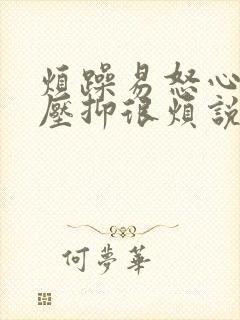 煩躁易怒心
壓抑很煩說
何夢華